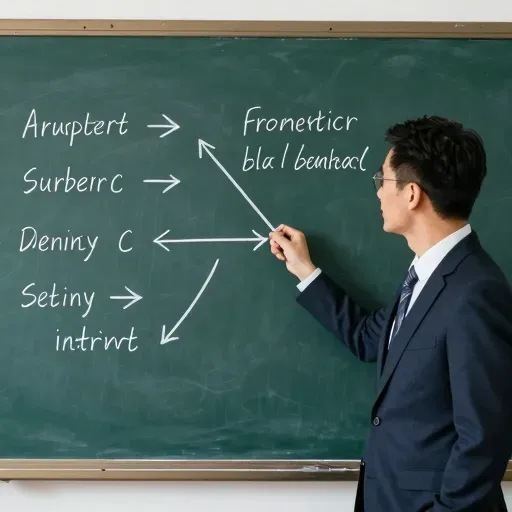 Aruptert →
Surberr C →
Deniny C
Setiny →
intrivt
Fronerticr
bla l benkad